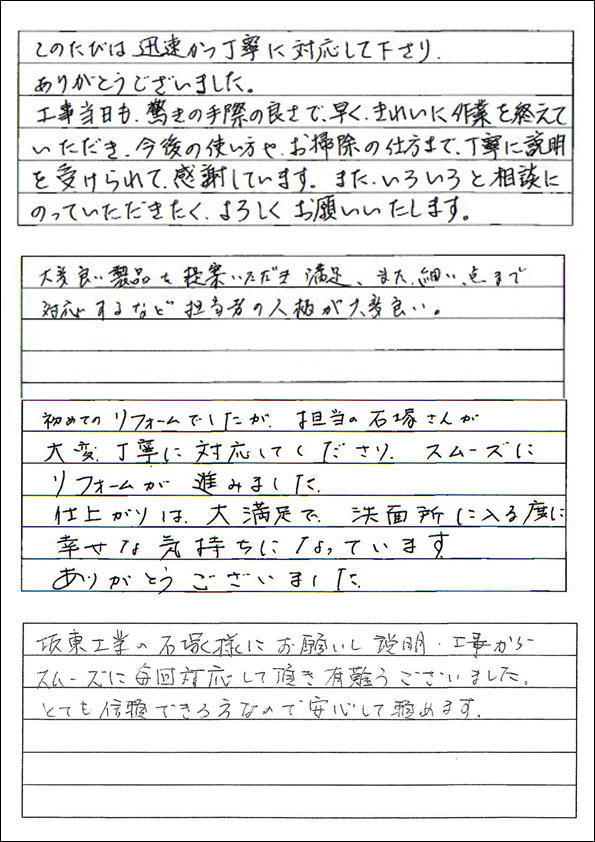 このたびは迅速かつ丁寧に対応して下さり、
ありがとうございました。
工事当日も、驚きの手際の良さで、早く、きれいに作業を終えて
いただき、今後の使い方や、お掃除の仕方まで、丁寧に説明
を受けられて、感謝しています。また、いろいろと相談に
のっていただきたく、よろしくお願いいたします。
大変良い製品を提案いただき満足、また、細い点まで
対応するなど担当者の人柄が大変良い。
初めてのリフォームでしたが、担当の石塚さんが
大変、丁寧に対応してくださり、スムーズに
リフォームが進みました。
仕上がりは、大満足で、洗面所に入る度に
幸せな気持ちになっています。
ありがとうございました。
坂東工業の石塚様にお願いし説明・工事から
スムーズに毎回対応して頂き有難うございました。
とても信頼できる方なので安心して頼めます。